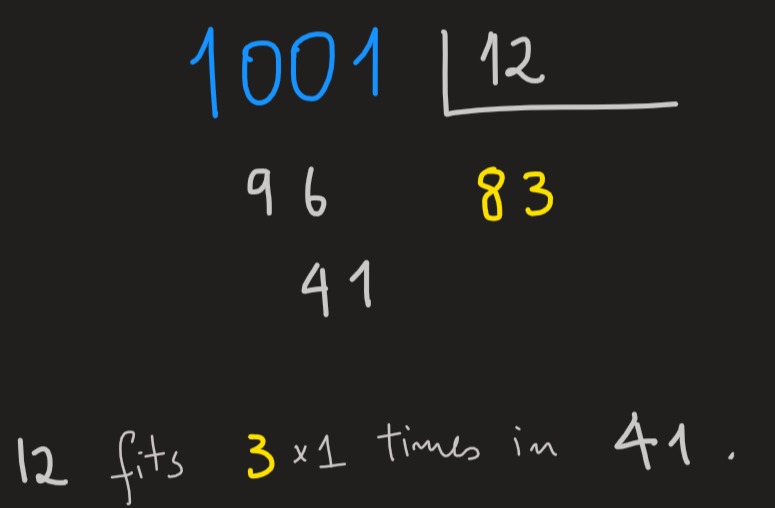 1001 12
96 83
41
12 fits 3 × 1 times in 41.